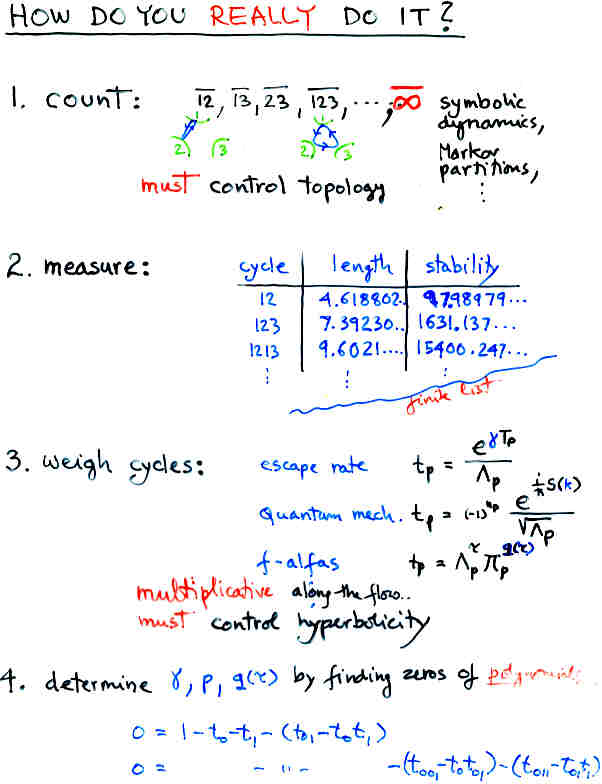 HOW DO YOU REALLY DO IT?
1. count: 12, 13, 23, 123, ..., ∞ symbolic dynamics, Markov partitions,
2 3 2 3
must control topology
2. measure: cycle length stability
12 4.618802.. 97.98979...
123 7.39230.. 1631.137...
1213 9.6021.... 15400.247...
finite list
3. weigh cycles: escape rate t_p = e^{γT_p} / Λ_p
quantum mech. t_p = (-1)^{n_p} e^{i/ħ S(k)} / √Λ_p
f-alfas t_p = Λ_p^τ π_p^{q(τ)}
multiplicative along the flow..
must control hyperbolicity
4. determine γ, p, q(τ) by finding zeros of polynomials
0 = 1 - t_0 - t_1 - (t_01 - t_0 t_1)
0 = - " - - (t_001 - t_0 t_01) - (t_011 - t_01 t_1)